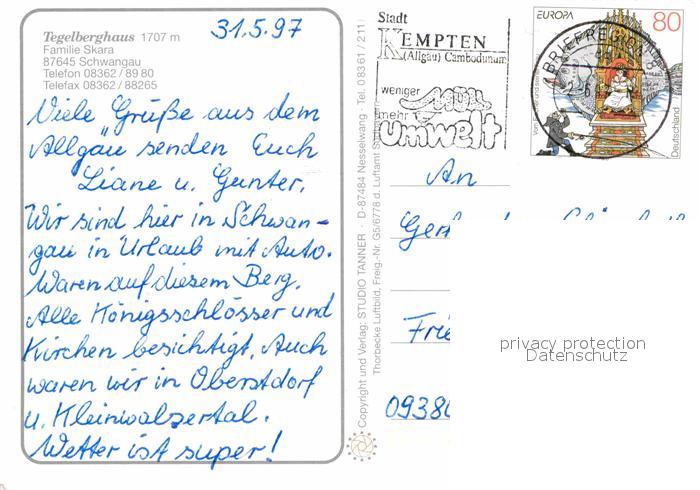 Tegelberghaus 1707 m
Familie Skara
87645 Schwangau
Telefon 08362 / 89 80
Telefax 08362 / 88265
31.5.97
Viele Grüße aus dem
Allgäu senden Euch
Liane u. Gunter.
Wir sind hier in Schwan-
gau in Urlaub mit Auto.
Waren auf diesem Berg.
Alle Königsschlösser und
Kirchen besichtigt. Auch
waren wir in Oberstdorf
u. Kleinwalsertal.
Wetter ist super!
Copyright und Verlag: STUDIO TANNER · D-87484 Nesselwang · Tel. 0 83 61 / 211
Thorbecke Luftbild, Freig.-Nr. G5/6778 d. Luftamt
Stadt
KEMPTEN
(Allgäu) Cambodunum
weniger
Müll
mehr
umwelt
EUROPA
80
BRIEFREGION 8
Deutschland
An
Ger
Frie
0938
privacy protection
Datenschutz